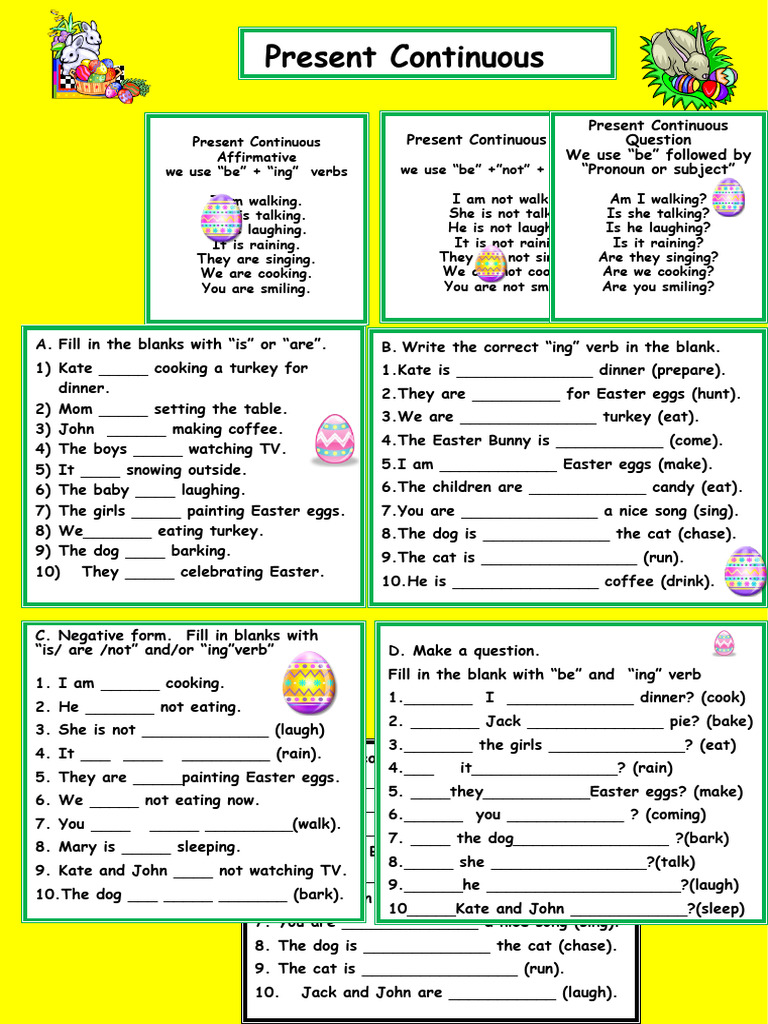 Present Continuous
Present Continuous
Affirmative
we use “be” + “ing”  verbs
walking.
is talking.
laughing.
It is raining.
They are singing.
We are cooking.
You are smiling.
Present Continuous
we use “be” +“not” +
I am not walk
She is not talk
He is not laugh
It is not raini
They not sin
We not coo
You are not sm
Present Continuous
Question
We use “be” followed by
“Pronoun or subject”
Am I walking?
Is she talking?
Is he laughing?
Is it raining?
Are they singing?
Are we cooking?
Are you smiling?
A. Fill in the blanks with “is” or “are”.
1) Kate _____ cooking a turkey for
dinner.
2) Mom _____ setting the table.
3) John  ______ making coffee.
4) The boys _____ watching TV.
5) It ____ snowing outside.
6) The baby ____ laughing.
7) The girls _____ painting Easter eggs.
8) We_______ eating turkey.
9) The dog ____ barking.
10)   They _____ celebrating Easter.
B. Write the correct “ing” verb in the blank.
1.Kate is ______________ dinner (prepare).
2.They are _________ for Easter eggs (hunt).
3.We are ______________ turkey (eat).
4.The Easter Bunny is ___________ (come).
5.I am ____________ Easter eggs (make).
6.The children are ____________ candy (eat).
7.You are ______________ a nice song (sing).
8.The dog is _____________ the cat (chase).
9.The cat is ________________ (run).
10.He is _______________ coffee (drink).
C. Negative form.  Fill in blanks with
“is/ are /not” and/or “ing”verb”
1. I am ______ cooking.
2. He _______ not eating.
3. She is not _____________ (laugh)
4. It ___  ____  _________ (rain).
5. They are _____painting Easter eggs.
6. We _____ not eating now.
7. You ____  _____ _________(walk).
8. Mary is _____ sleeping.
9. Kate and John ____ not watching TV.
10.The dog ___ _____ _______ (bark).
D. Make a question.
Fill in the blank with “be” and  “ing” verb
1._______  I  _____________ dinner? (cook)
2. _______ Jack ______________ pie? (bake)
3._______ the girls ______________? (eat)
4.___   it_______________? (rain)
5. ____they___________Easter eggs? (make)
6.______  you ____________ ? (coming)
7. ____ the dog________________ ?(bark)
8._____ she ________________?(talk)
9.______he ____________________?(laugh)
10_____Kate and John ____________?(sleep)
7. You are ______________ a nice song (sing).
8. The dog is _____________ the cat (chase).
9. The cat is ________________ (run).
10.   Jack and John are ___________ (laugh).